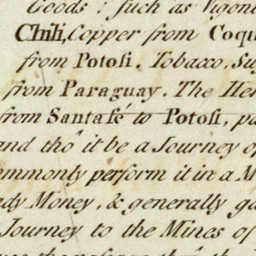 Goods: such as Vigon
Chili, Copper from Coqu
from Potosi. Tobaco. Su
from Paraguay. The He
from Santa fé to Potosi, p
and tho' it be a Journey o
ommonly perform it in a M
dy Money, & generally g
Journey to the Mines of